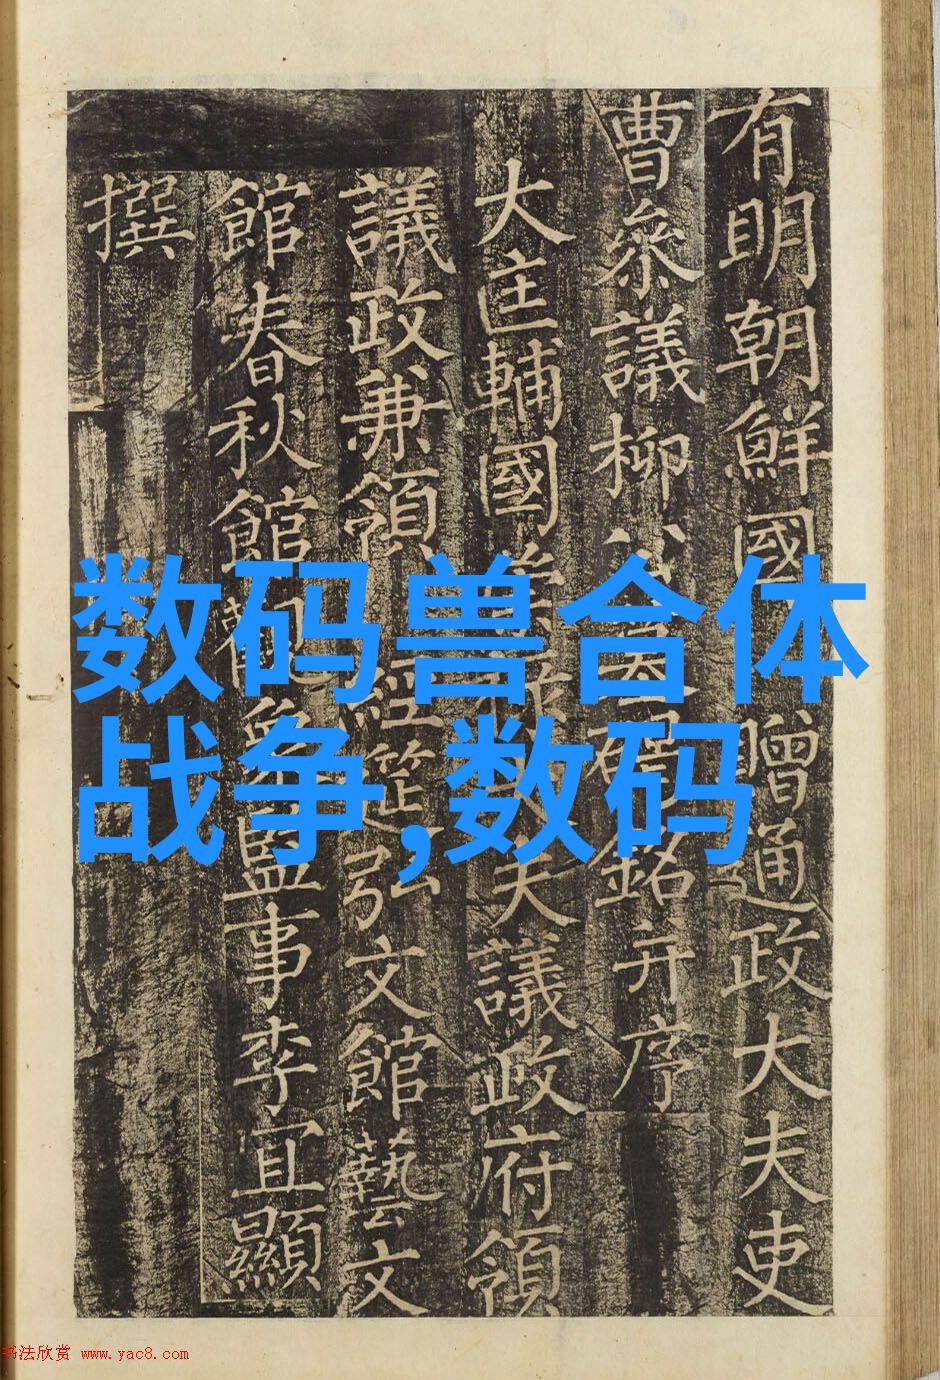 有明朝鮮國 贈通政大夫吏
曹叅議柳公墓碑銘并序
大匡輔國崇祿大夫議政府領
議政兼領 經筵弘文館藝文
館春秋館觀象監事李宜顯
撰
数码兽合体
战争,数码
书法欣赏 www.yac8.com